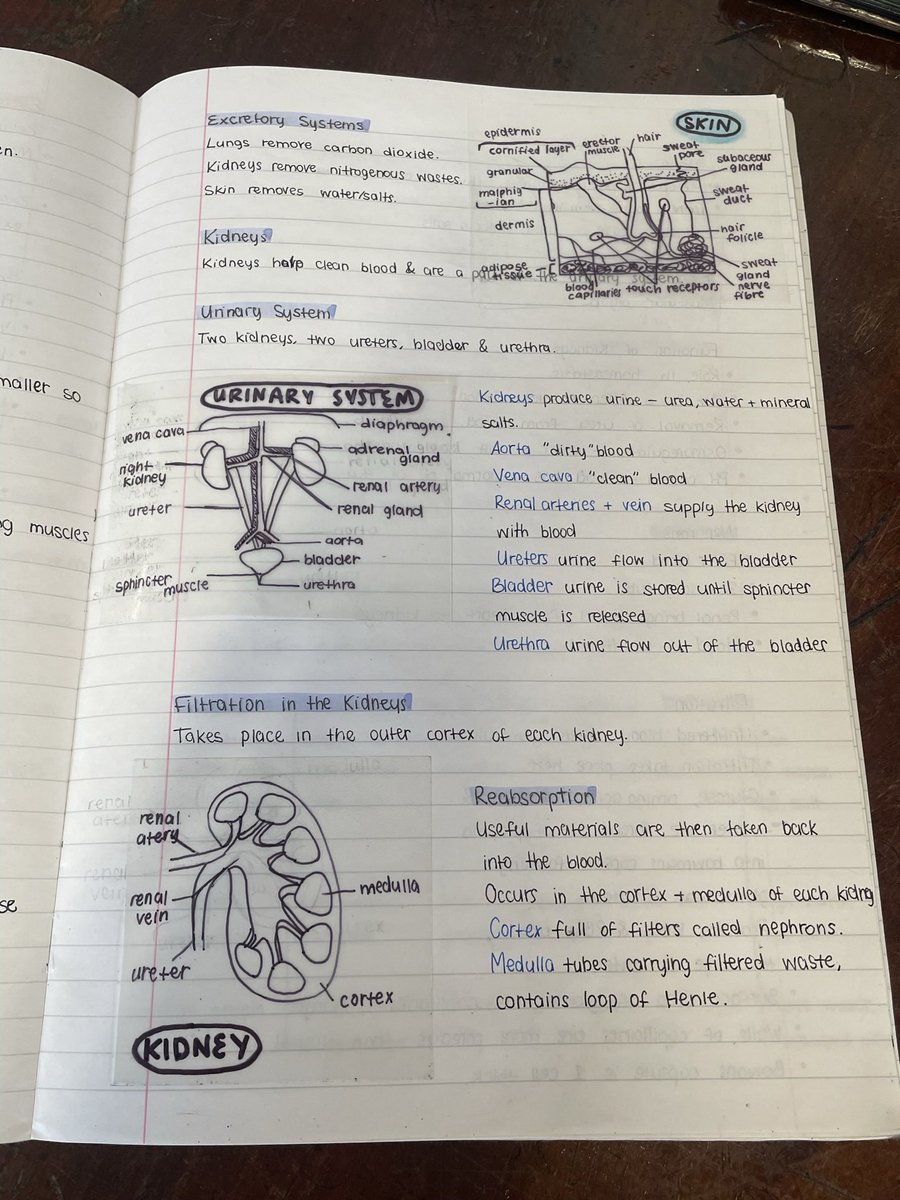 en.
maller so
g muscles
se
Excretory Systems
Lungs remove carbon dioxide.
Kidneys remove nitrogenous wastes.
Skin removes water/salts.
SKIN
epidermis
cornified layer
granular
malphig
-ian
dermis
adipose
tissue
erector
muscle
hair
sweat
pore
subaceous
gland
sweat
duct
hair
folicle
sweat
gland
nerve
fibre
blood
capillaries
touch receptors
Kidneys
Kidneys help clean blood & are a part of the urinary system.
Urinary System
Two kidneys, two ureters, bladder & urethra.
URINARY SYSTEM
vena cava
right
kidney
ureter
sphincter muscle
diaphragm
adrenal
gland
renal artery
renal gland
aorta
bladder
urethra
Kidneys produce urine - urea, water + mineral
salts.
Aorta "dirty" blood
Vena cava "clean" blood
Renal arteries + vein supply the kidney
with blood
Ureters urine flow into the bladder
Bladder urine is stored until sphincter
muscle is released
Urethra urine flow out of the bladder
Filtration in the Kidneys
Takes place in the outer cortex of each kidney.
renal
atery
renal
vein
ureter
medulla
cortex
KIDNEY
Reabsorption
Useful materials are then taken back
into the blood.
Occurs in the cortex + medulla of each kidney
Cortex full of filters called nephrons.
Medulla tubes carrying filtered waste,
contains loop of Henle.